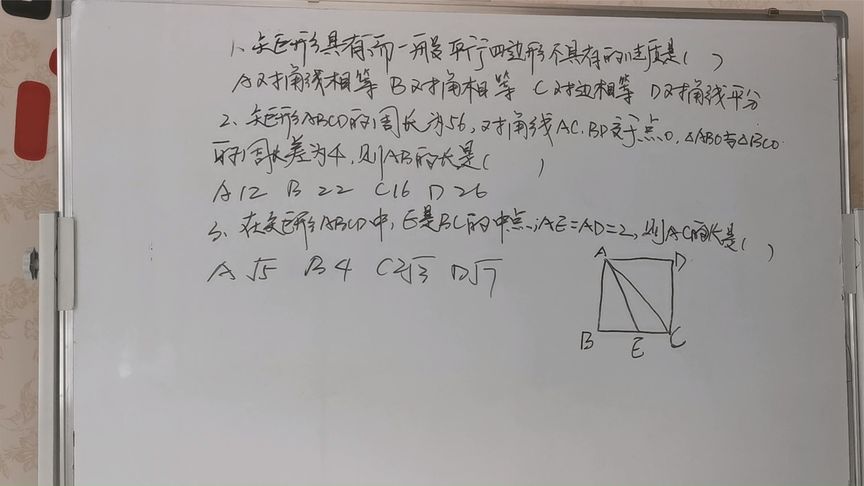 1、矩形具有而一般平行四边形不具有的性质是( )
A 对角线相等 B 对角相等 C 对边相等 D 对角线平分
2、矩形ABCD的周长为56,对角线AC,BD交于点O,△ABO与△BCO
的周长差为4,则AB的长是( )
A 12 B 22 C 16 D 26
3、在矩形ABCD中,E是BC的中点,AE=AD=2,则AC的长是( )
A √5 B 4 C 2√3 D √7
A D
B E C